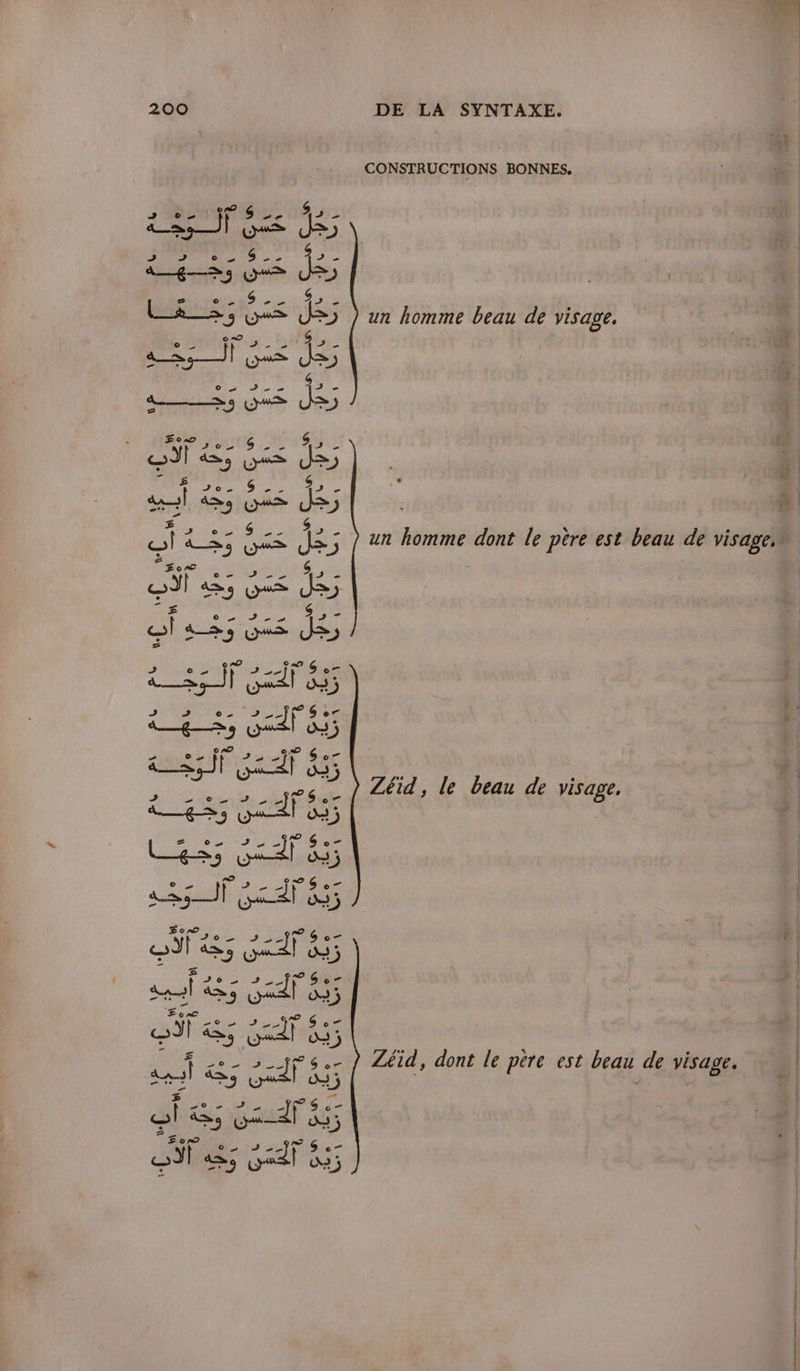 200 DE LA SYNTAXE.
CONSTRUCTIONS BONNES.
رَجُلٌ حَسَنٌ ٱلْوَجْهُ
رَجُلٌ حَسَنٌ وَجْهُهُ
رَجُلٌ حَسَنٌ وَجْهًا
un homme beau de visage.
رَجُلٌ حَسَنُ ٱلْوَجْهِ
رَجُلٌ حَسَنُ وَجْهٍ
رَجُلٌ حَسَنٌ وَجْهُ ٱلْأَبِ
رَجُلٌ حَسَنٌ وَجْهُ أَبِيهِ
رَجُلٌ حَسَنٌ وَجْهُ أَبٍ
un homme dont le père est beau de visage.
رَجُلٌ حَسَنُ وَجْهِ ٱلْأَبِ
رَجُلٌ حَسَنُ وَجْهِ أَبٍ
زَيْدٌ ٱلْحَسَنُ ٱلْوَجْهُ
زَيْدٌ ٱلْحَسَنُ وَجْهُهُ
زَيْدٌ ٱلْحَسَنُ ٱلْوَجْهَ
Zéid, le beau de visage.
زَيْدٌ ٱلْحَسَنُ وَجْهَهُ
زَيْدٌ ٱلْحَسَنُ وَجْهًا
زَيْدٌ ٱلْحَسَنُ ٱلْوَجْهِ
زَيْدٌ ٱلْحَسَنُ وَجْهُ ٱلْأَبِ
زَيْدٌ ٱلْحَسَنُ وَجْهُ أَبِيهِ
زَيْدٌ ٱلْحَسَنُ وَجْهَ ٱلْأَبِ
زَيْدٌ ٱلْحَسَنُ وَجْهَ أَبِيهِ
Zéid, dont le père est beau de visage.
زَيْدٌ ٱلْحَسَنُ وَجْهَ أَبٍ
زَيْدٌ ٱلْحَسَنُ وَجْهِ ٱلْأَبِ